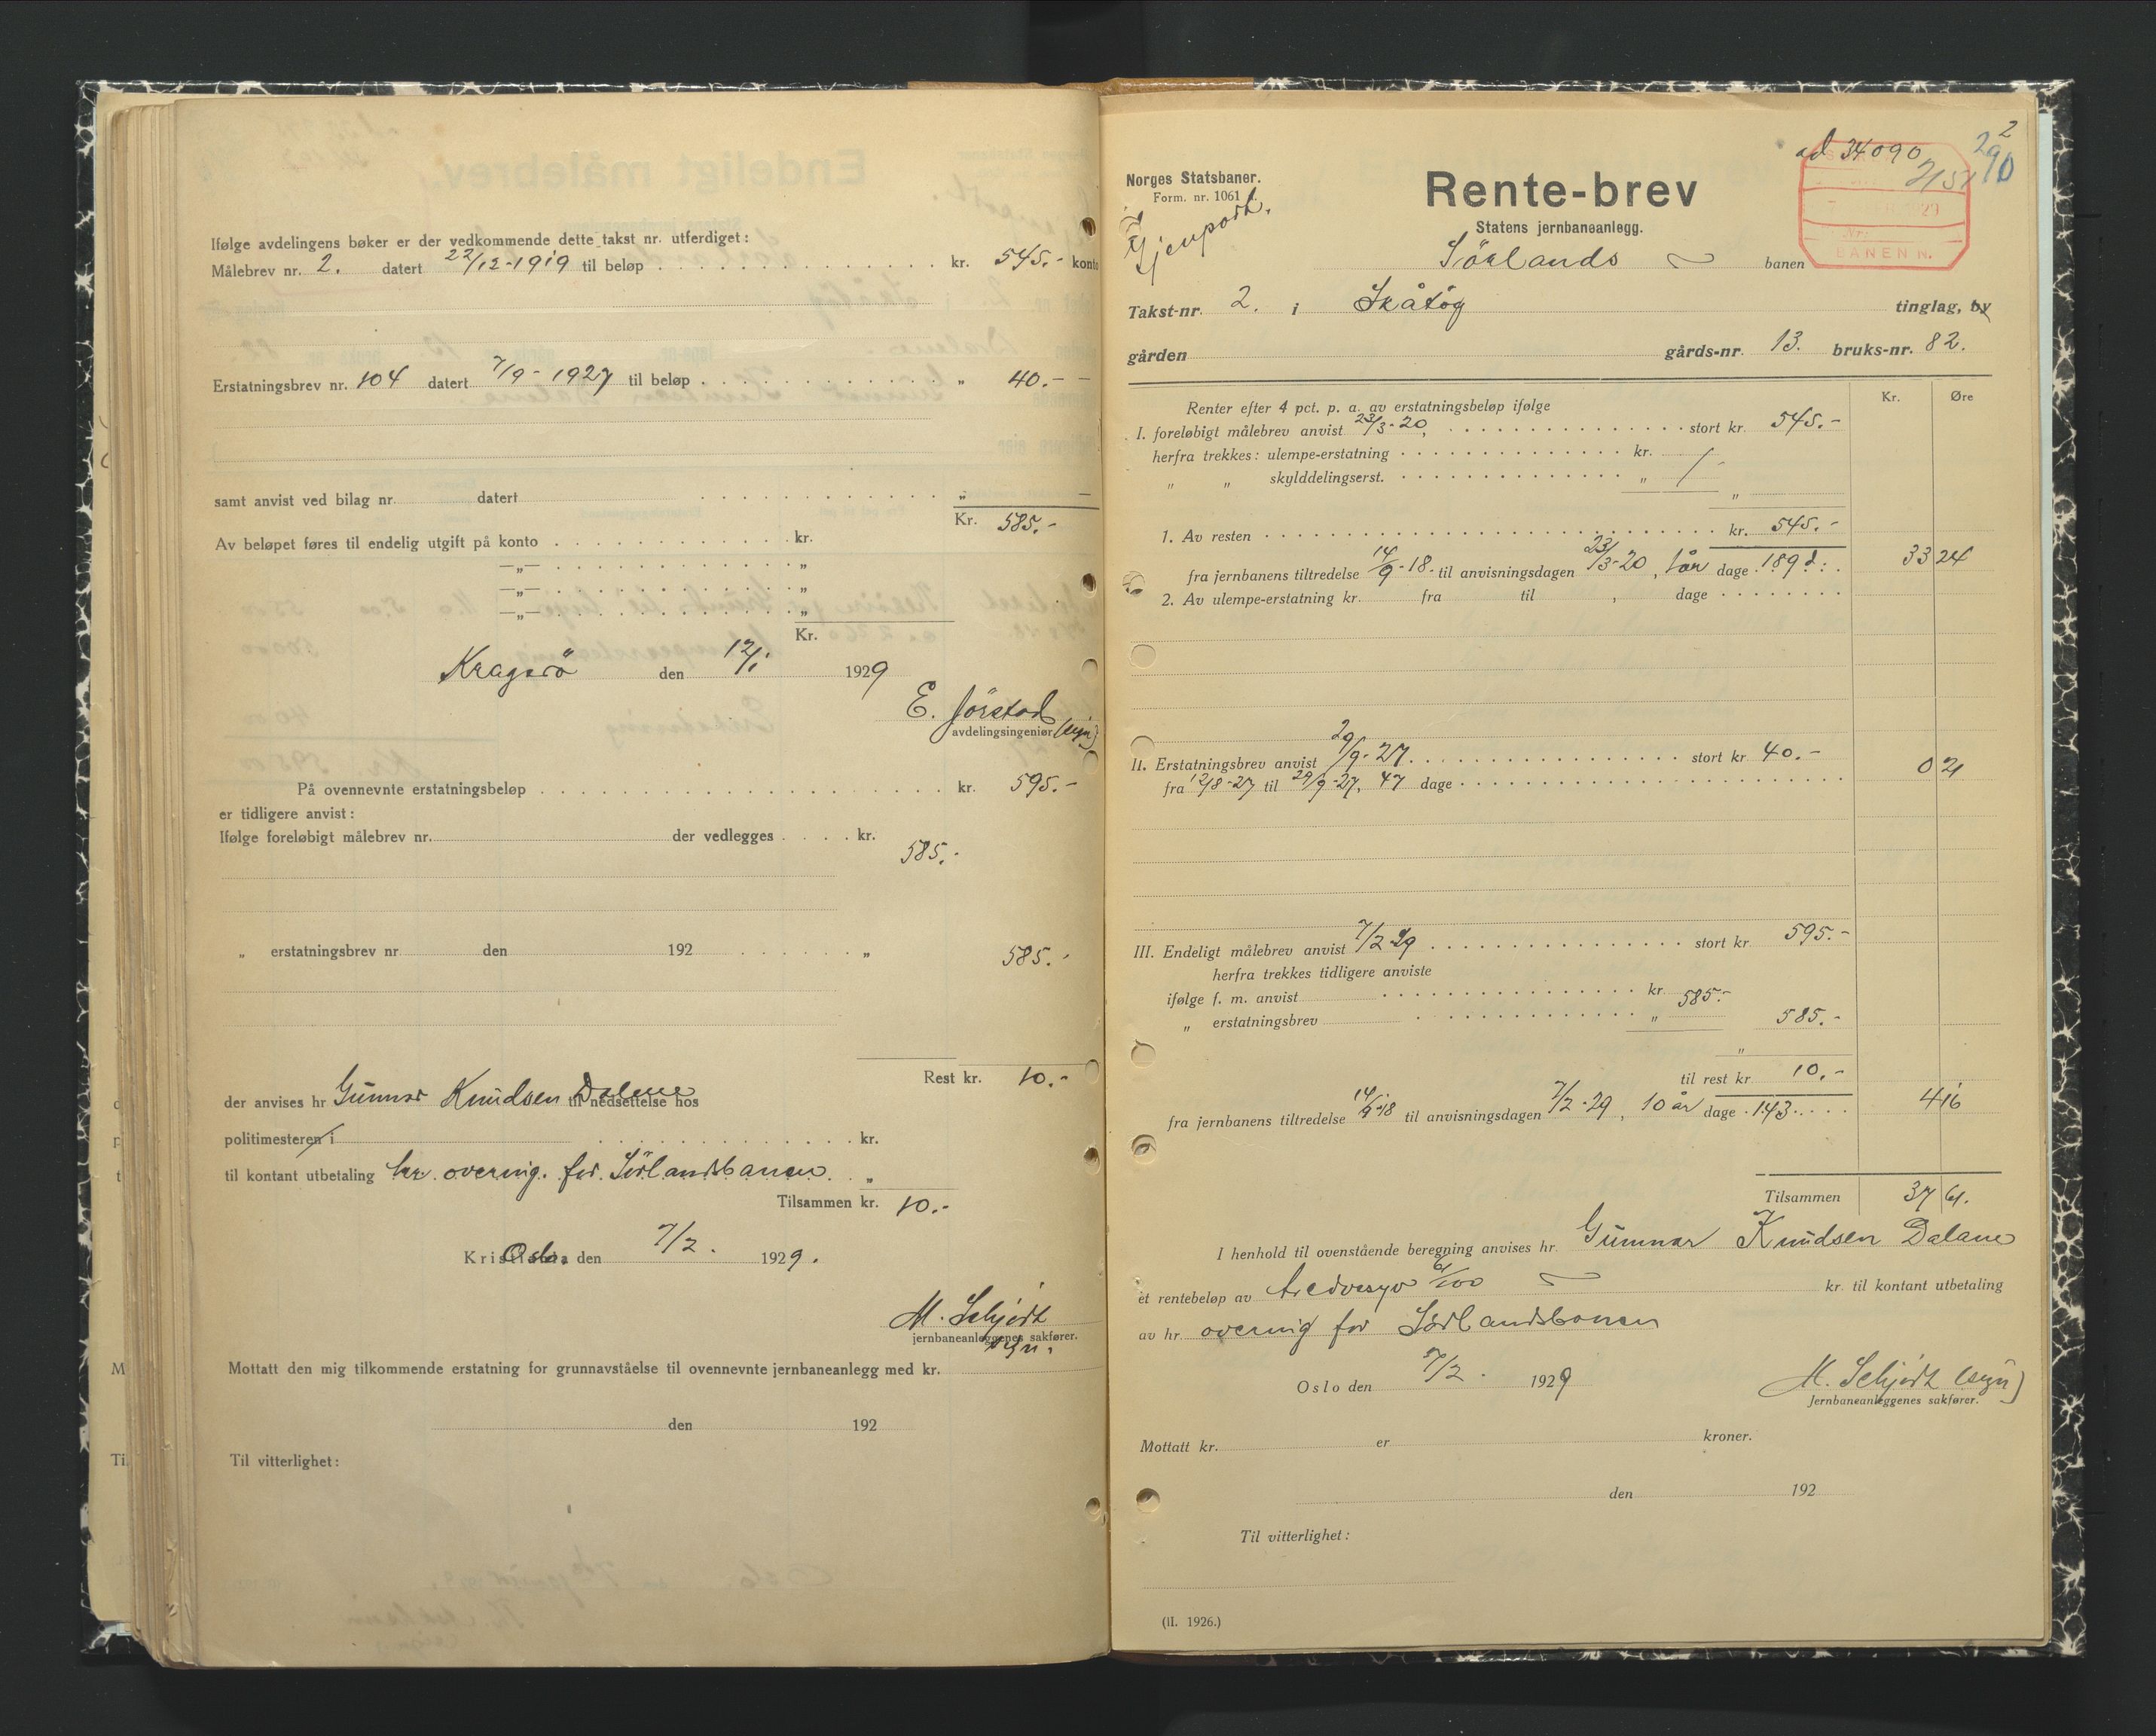 Ifølge avdelingens bøker er der vedkommende dette takst nr. utferdiget:
Målebrev nr. 2. datert 22/12-1919 til beløp kr. 545.- konto
Erstatningsbrev nr. 104 datert 7/9-1927 til beløp „ 40.- -
samt anvist ved bilag nr. datert „ -
Kr. 585.-
Av beløpet føres til endelig utgift på konto kr.
—„— „
—„— „
—„— „
Kr.
Kragerö den 12/1 1929
E. Jörstad (sign)
avdelingsingeniør
På ovennevnte erstatningsbeløp kr. 595.-
er tidligere anvist:
Ifølge foreløbigt målebrev nr. der vedlegges kr. 585.-
„ erstatningsbrev nr. den 192 „ 585.-
Rest kr. 10.-
der anvises hr Gunnar Knudsen Dalane til nedsettelse hos
politimesteren i kr.
til kontant utbetaling hr. overing. for Sörlandsbanen „
Tilsammen kr. 10.-
Kristiania Oslo den 7/2. 1929.
M. Schjödt
jernbaneanleggenes sakfører.
sign.
Mottatt den mig tilkommende erstatning for grunnavståelse til ovennevnte jernbaneanlegg med kr.
den 192
Til vitterlighet:
ad 34090
2
290
Norges Statsbaner.
Form. nr. 1061 f.
Gjenpart.
Rente-brev
Statens jernbaneanlegg.
Sörlands banen
BANEN N.
Takst-nr. 2. i Skåtöy tinglag, by
gården gårds-nr. 13. bruks-nr. 82.
Kr. Øre
Renter efter 4 pct. p. a. av erstatningsbeløp ifølge
I. foreløbigt målebrev anvist 23/3-20, stort kr. 545.-
herfra trekkes: ulempe-erstatning kr.
„ „ skylddelingserst. „ /-
„
1. Av resten kr. 545.-
fra jernbanens tiltredelse 14/9-18. til anvisningsdagen 23/3-20, 1 år dage 189 d. 33 24
2. Av ulempe-erstatning kr. fra til , dage
II. Erstatningsbrev anvist 29/9-27. stort kr. 40.-
fra 12/8-27 til 29/9-27, 47 dage 0 21
III. Endeligt målebrev anvist 7/2-29 stort kr. 595.-
herfra trekkes tidligere anviste
ifølge f. m. anvist kr. 585.-
„ erstatningsbrev „ 585.-
„
til rest kr. 10.-
fra jernbanens tiltredelse 14/9-18 til anvisningsdagen 7/2-29, 10 år dage 143 4 16
Tilsammen 37 61.
I henhold til ovenstående beregning anvises hr. Gunnar Knudsen Dalane
et rentebeløp av tredvesyv 61/100 kr. til kontant utbetaling
av hr. overing for Sörlandsbanen
Oslo den 7/2. 1929
M. Schjödt (sign)
Jernbaneanleggenes sakfører.
Mottatt kr. er kroner.
den 192
Til vitterlighet:
(II. 1926.)